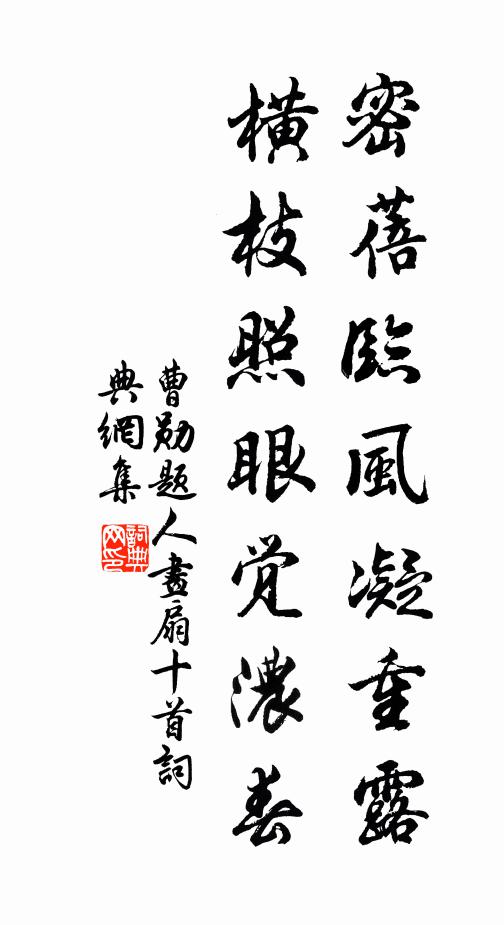 密蓓臨風凝重露
橫枝照眼覚濃春
曹勛題人畫扇十首詞
典網集
詞典
网印